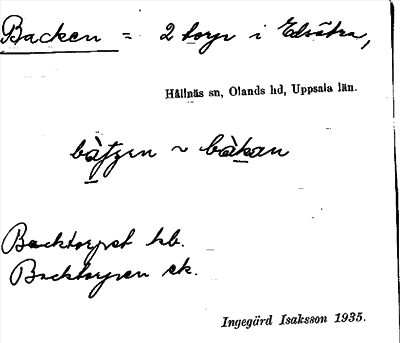 Backen = 2 torp i Edsätra,
Hållnäs sn, Olands hd, Uppsala län.
bàtzen ~ bàkan
Backtorpet kb.
Backtorpen ek.
Ingegärd Isaksson 1935.